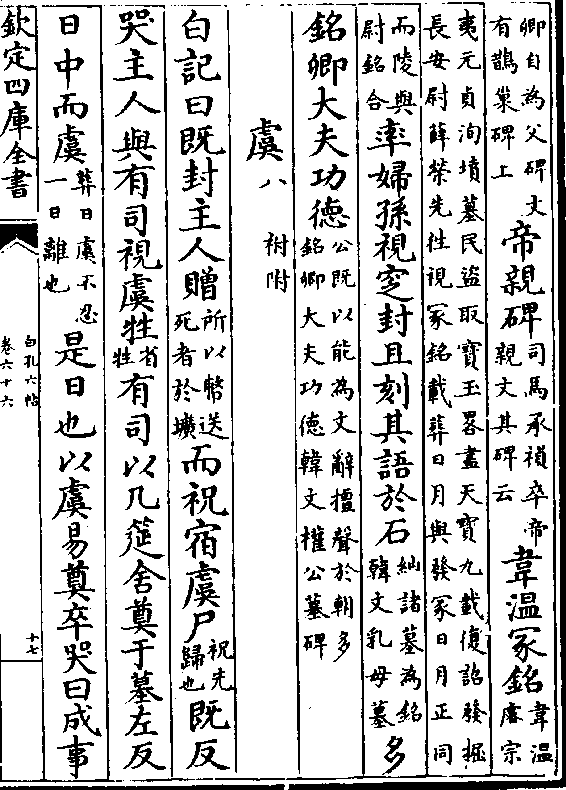 卿自為父碑文
有鵲巢碑上帝親碑司馬承禎卒帝
親文其碑云韋溫冢銘韋溫
唐宗
夷元貞洵墳墓民盜取寶玉畧盡天寶九載復詔發掘
長安尉薛榮先徃視冢銘載葬日月與發冢日月正同
而陵與
尉銘合率婦孫視窆封且刻其語於石納諸墓為銘
韓文乳母墓多
銘卿大夫功德公既以能為文辭擅聲於朝多
銘卿大夫功德韓文權公墓碑
虞八
祔附
白記曰既封主人贈所以幣送
死者於壙而祝宿虞尸祝先
歸也既反
哭主人與有司視虞牲省
牲有司以几筵舍奠于墓左反
日中而虞葬日虞不忍
一日離也是日也以虞易奠卒哭曰成事
欽定四庫全書
白孔六帖
卷六十六
十七